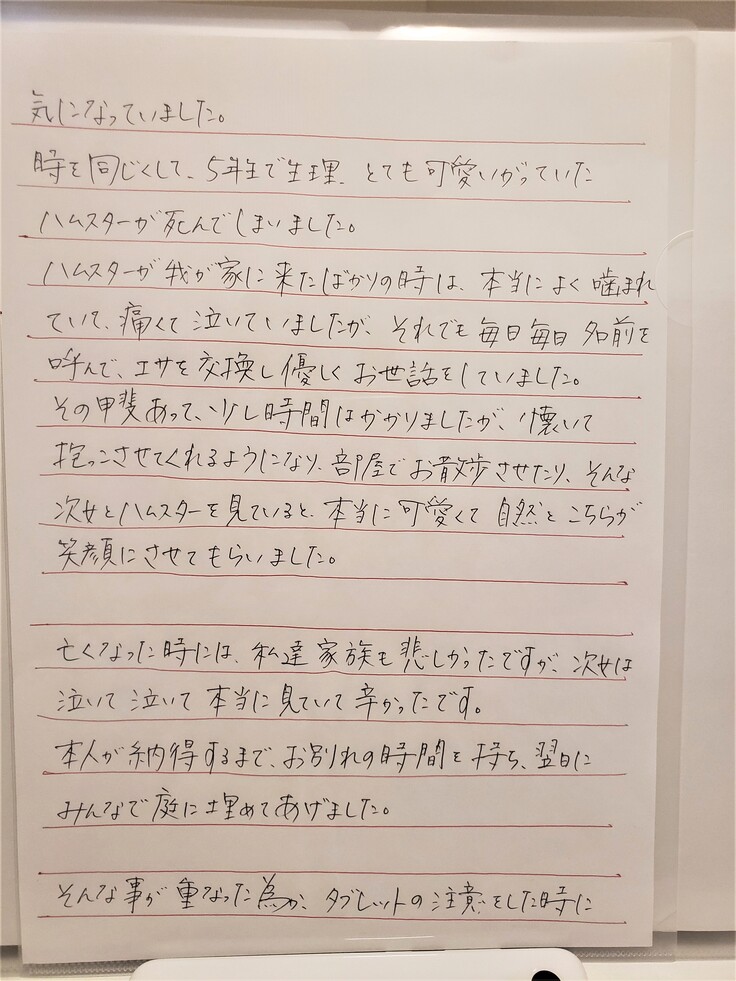 気になっていました。
時を同じくして、5年生で生理、とても可愛いがっていた
ハムスターが死んでしまいました。
ハムスターが我が家に来たばかりの時は、本当によく噛まれ
ていて、痛くて泣いていましたが、それでも毎日毎日名前を
呼んで、エサを交換し優しくお世話をしていました。
その甲斐あって、少し時間はかかりましたが、懐いて
抱っこさせてくれるようになり、部屋でお散歩させたり、そんな
次女とハムスターを見ていると、本当に可愛くて自然とこちらが
笑顔にさせてもらいました。
亡くなった時には、私達家族も悲しかったですが、次女は
泣いて泣いて本当に見ていて辛かったです。
本人が納得するまで、お別れの時間を持ち、翌日に
みんなで庭に埋めてあげました。
そんな事が重なった為か、タブレットの注意をした時に